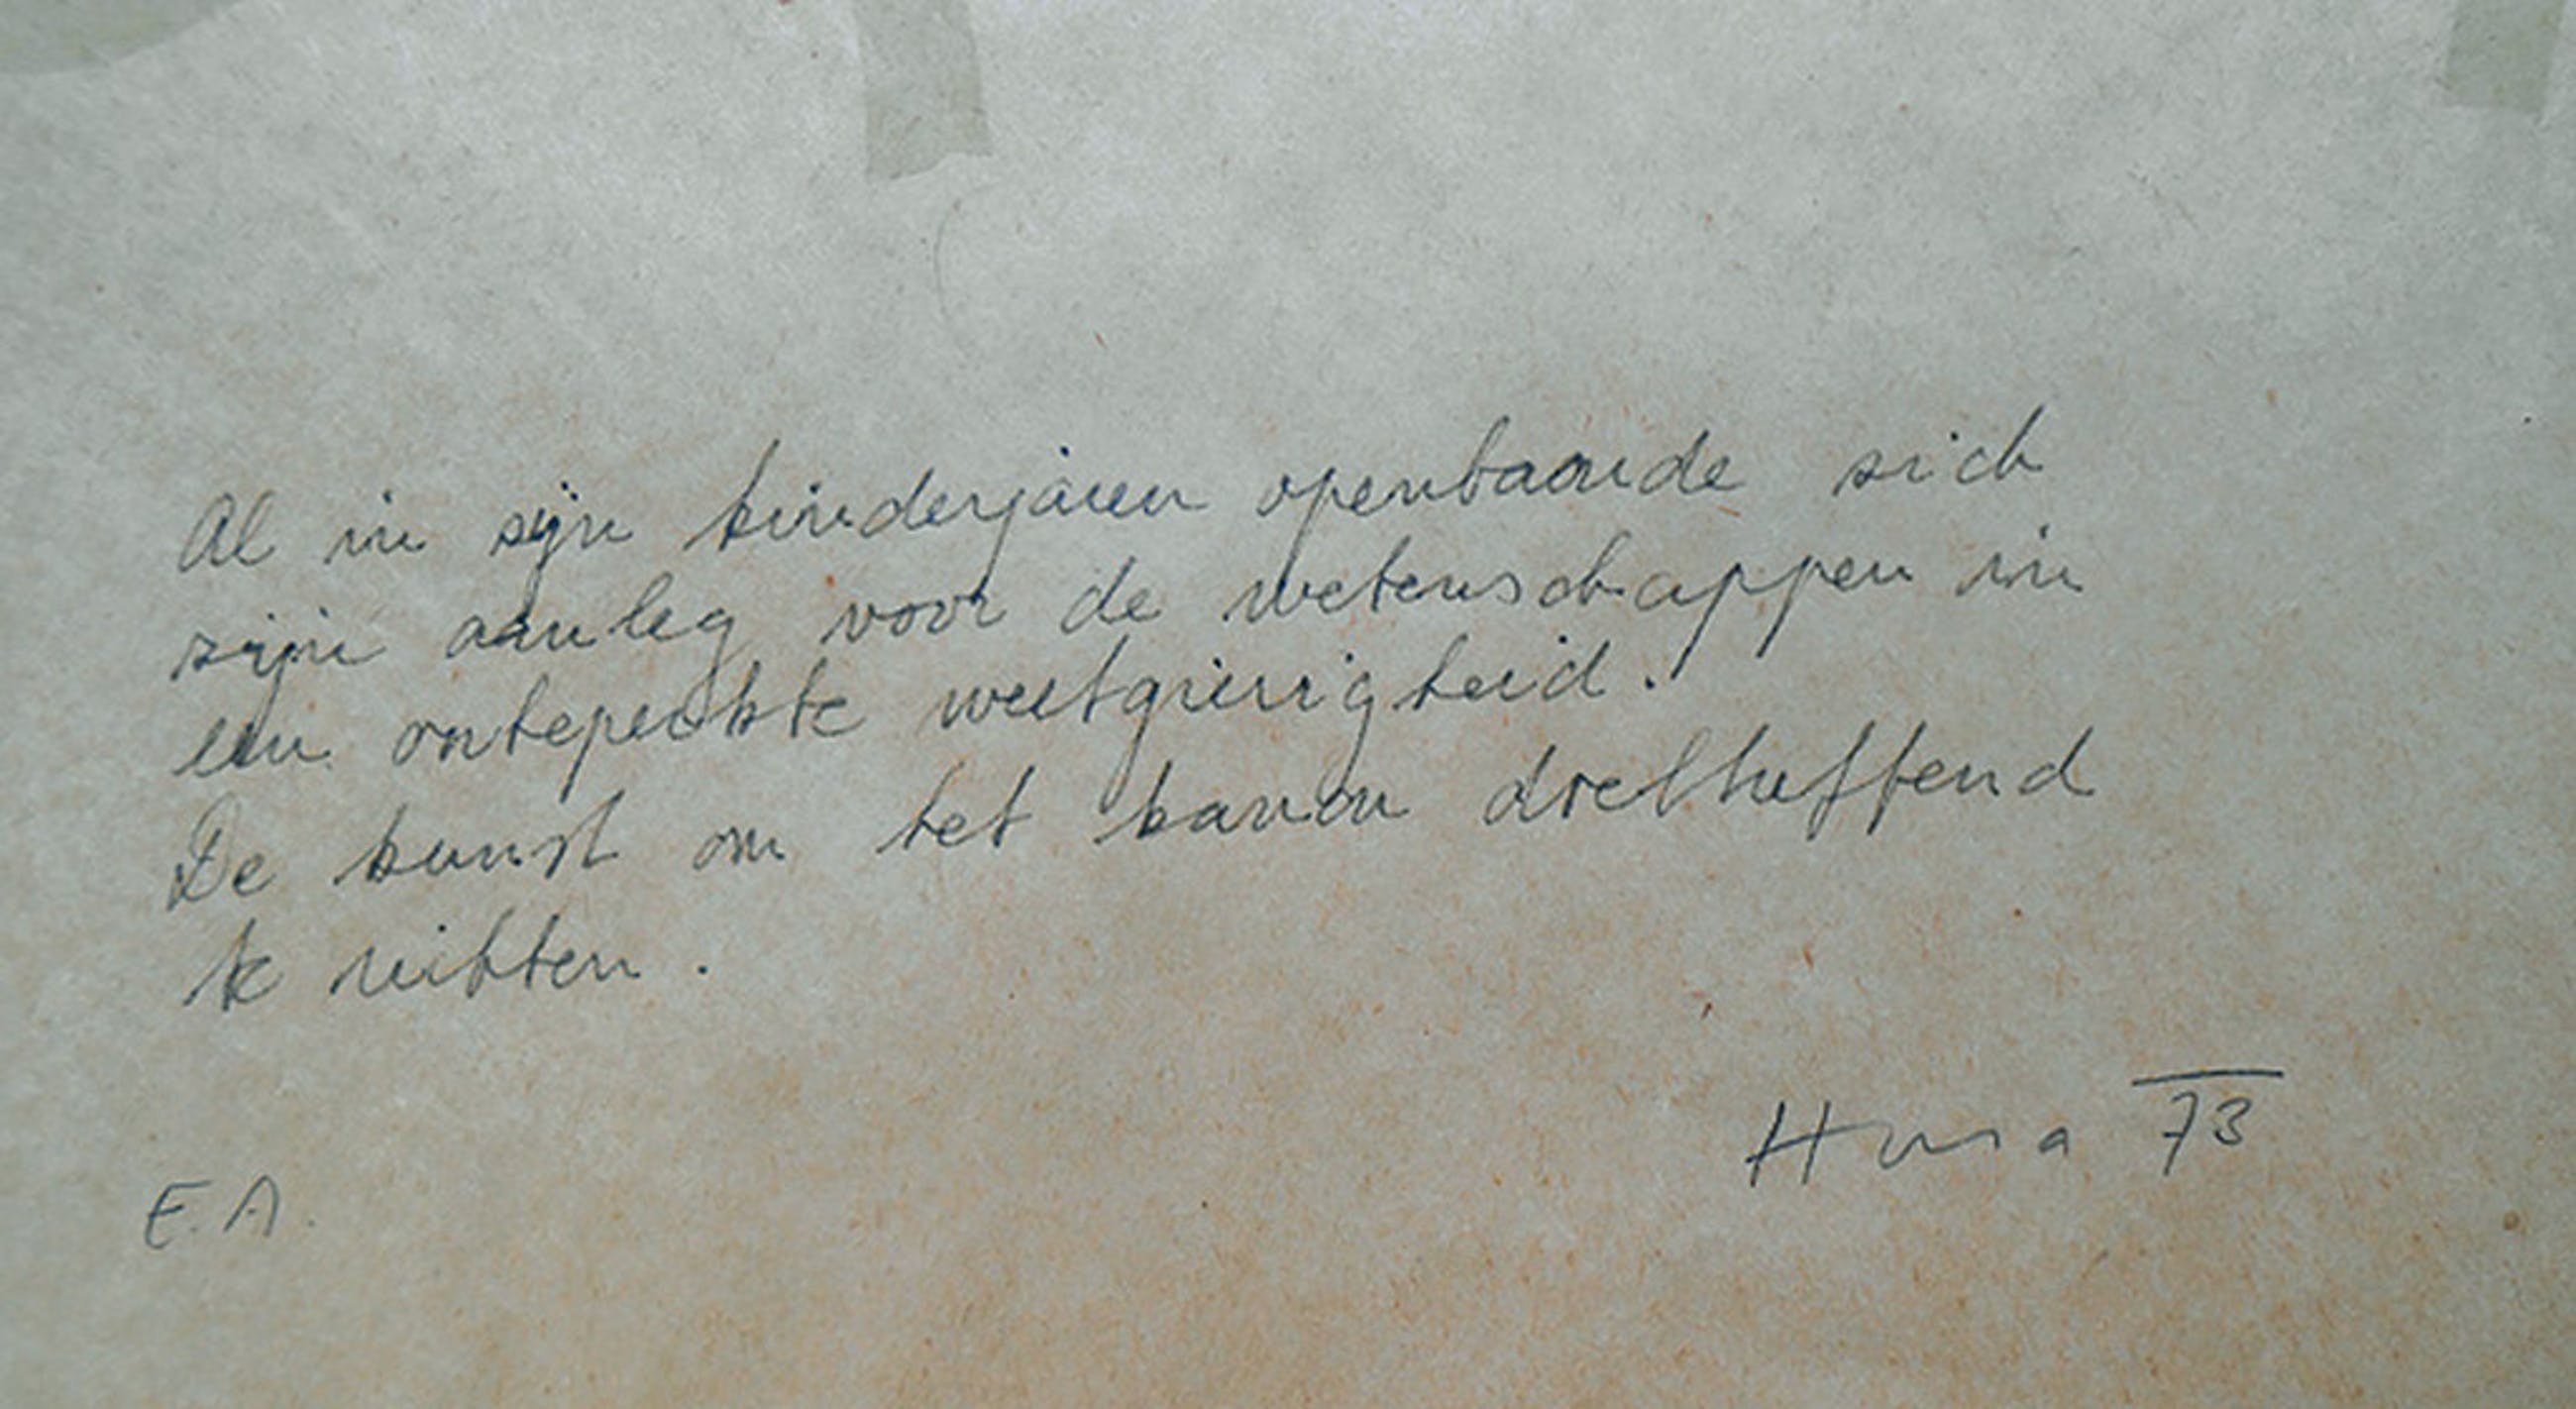 Al in zijn kinderjaren openbaarde zich
zijn aanleg voor de wetenschappen in
een onbeperkte weetgierigheid.
De kunst om het kanon doeltreffend
te richten.
73
E.A.